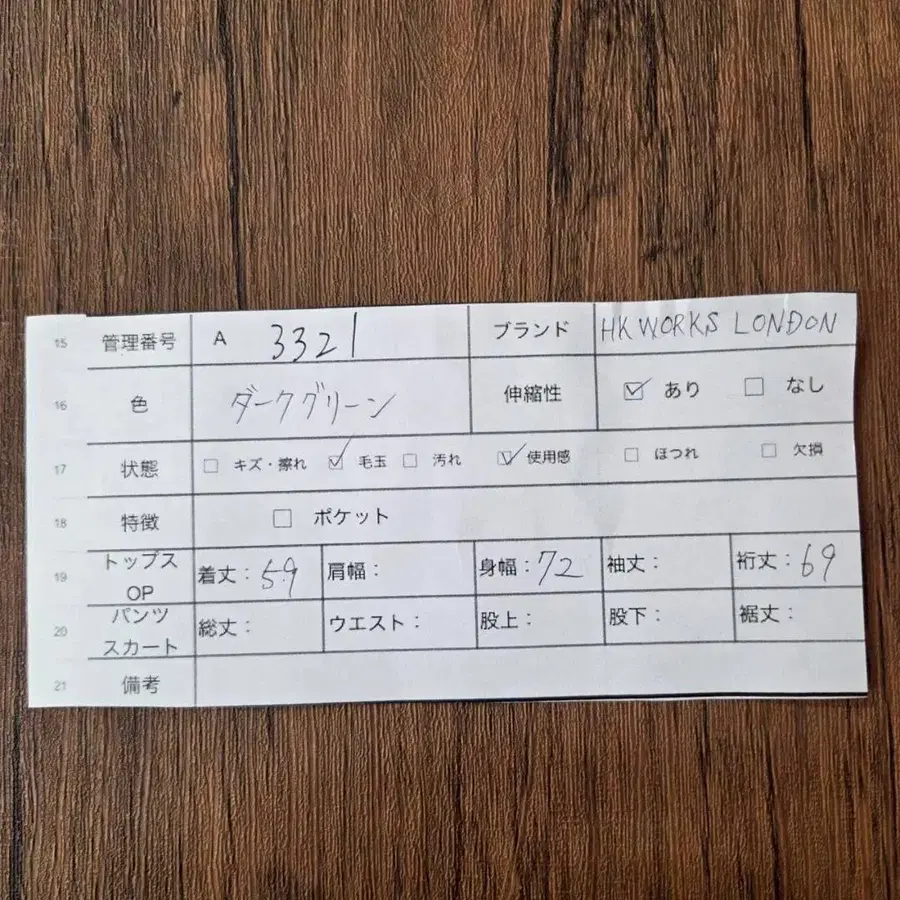 15 管理番号 A 3321 ブランド HK WORKS LONDON
16 色 ダークグリーン 伸縮性 ☑ あり ☐ なし
17 状態 ☐ キズ・擦れ ☑ 毛玉 ☐ 汚れ ☑ 使用感 ☐ ほつれ ☐ 欠損
18 特徴 ☐ ポケット
19 トップス OP 着丈：59 肩幅： 身幅：72 袖丈： 裄丈：69
20 パンツ スカート 総丈： ウエスト： 股上： 股下： 裾丈：
21 備考